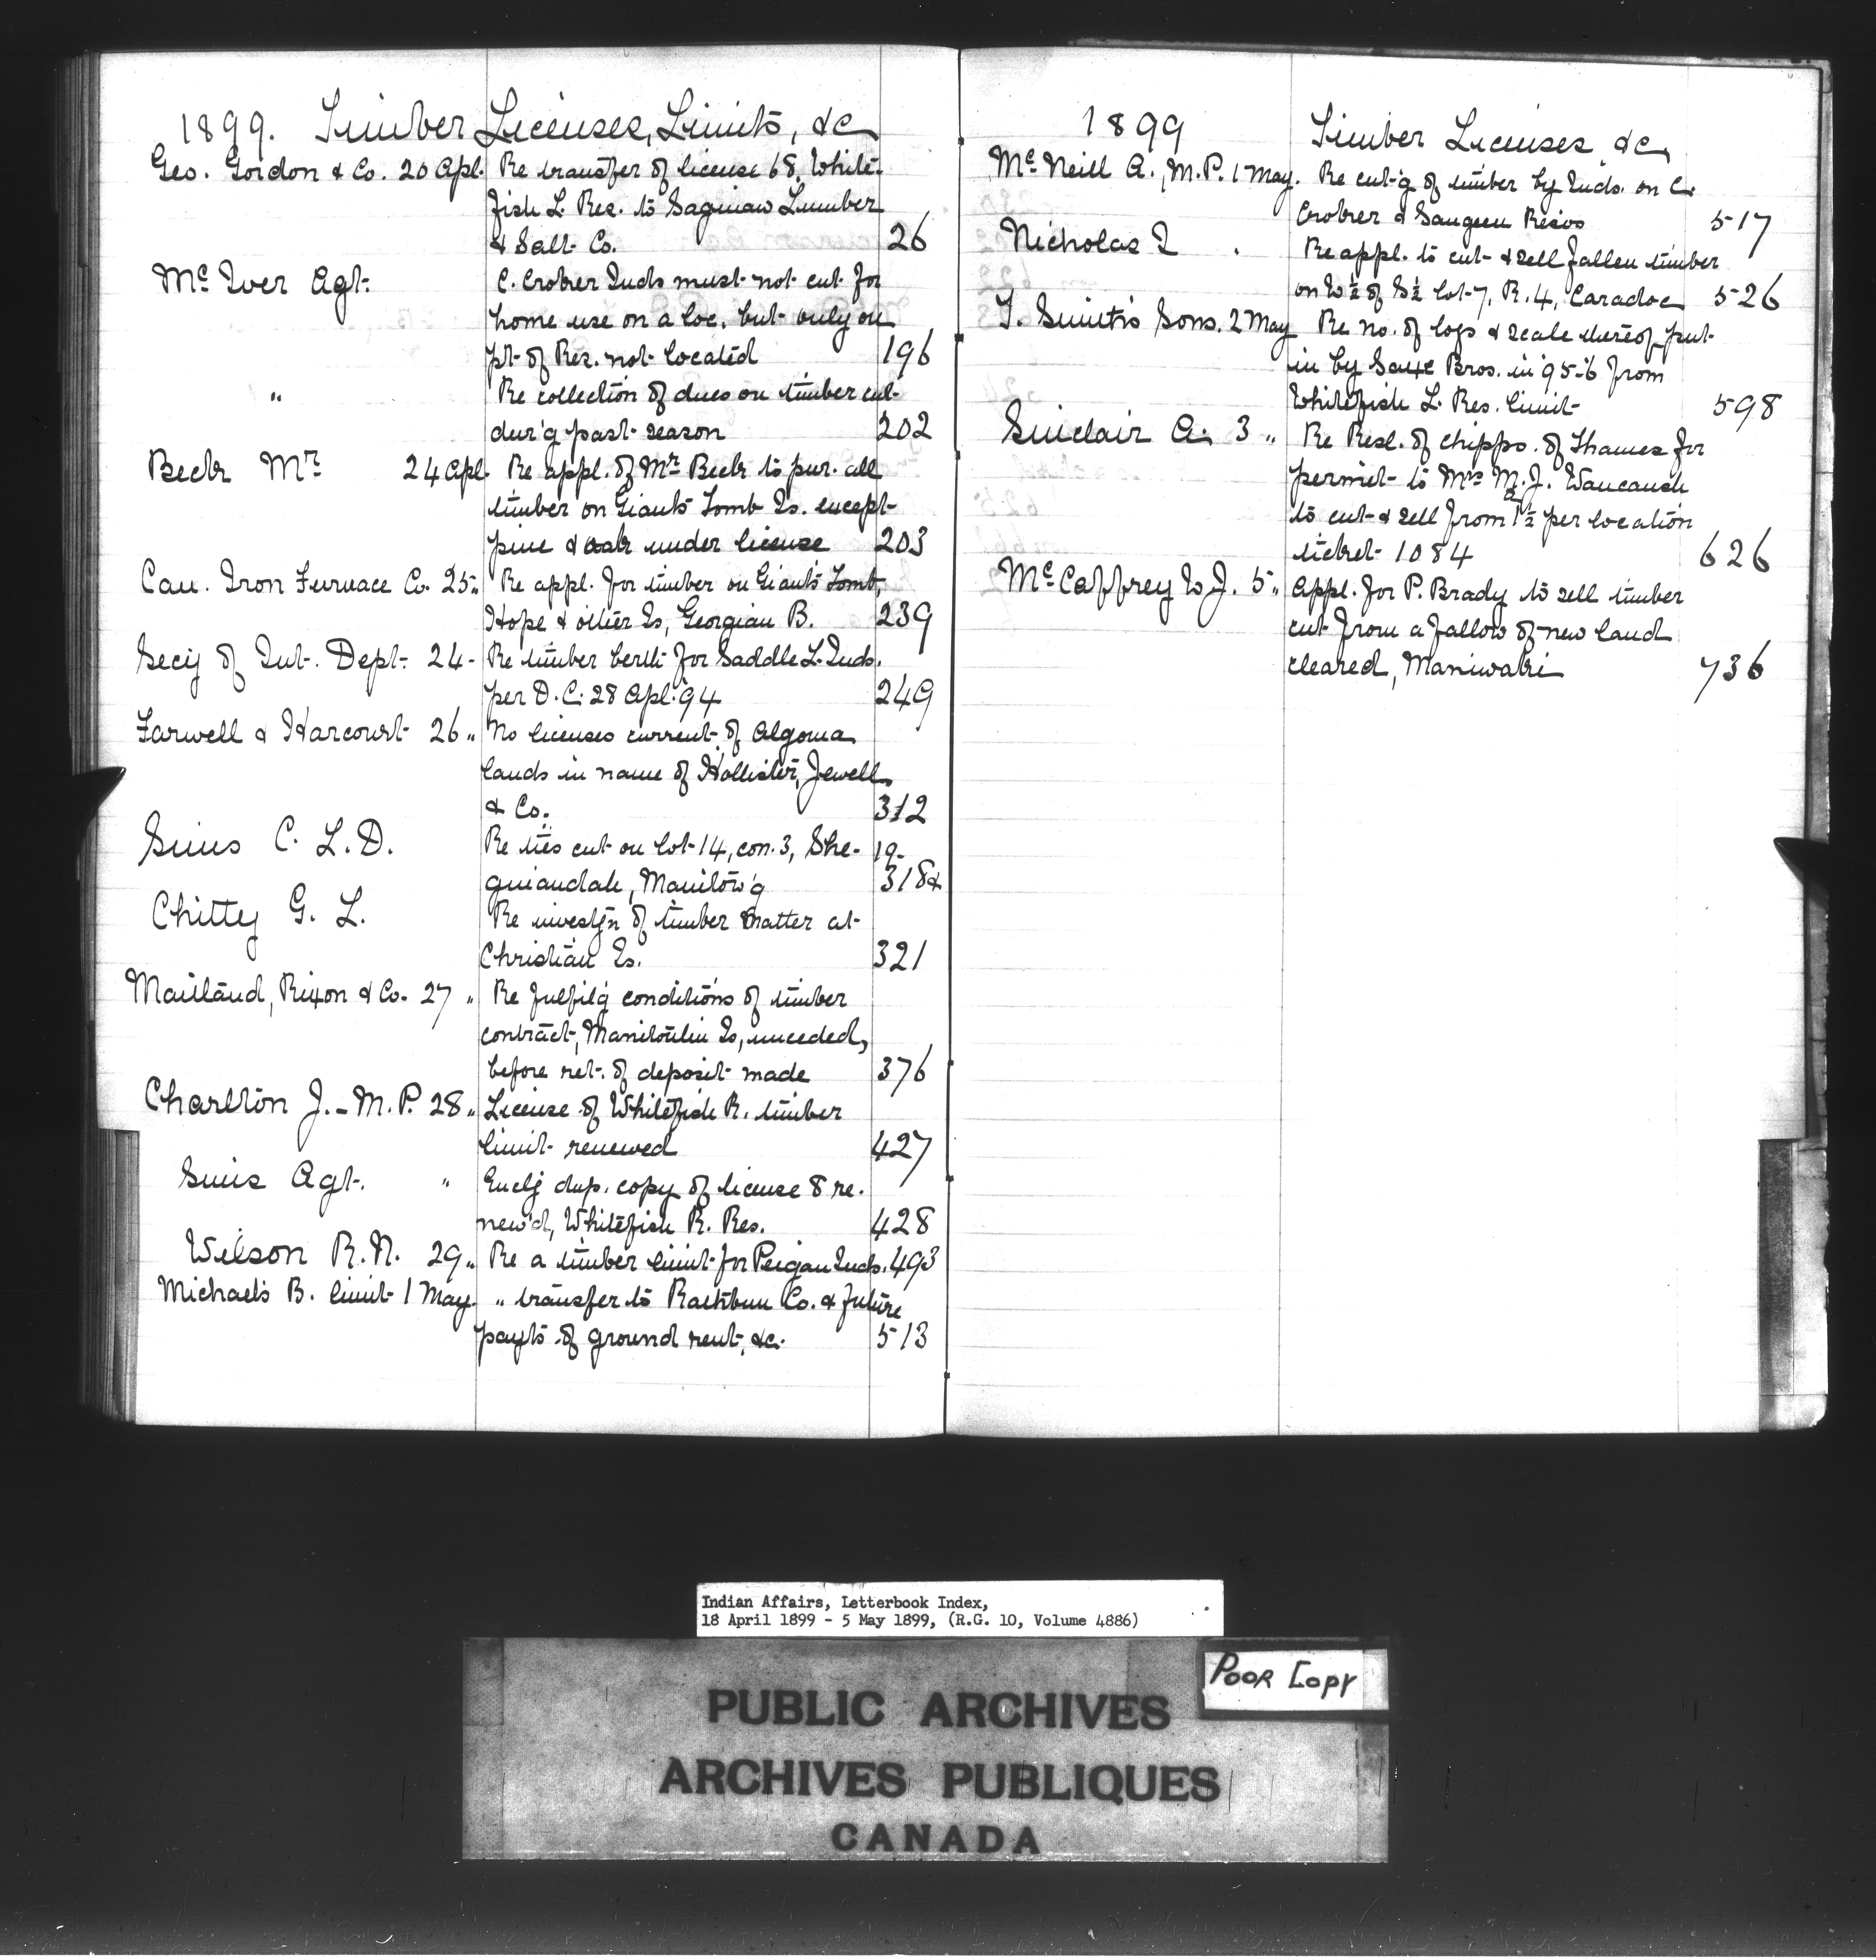 1899. Timber Licenses, Limits, &c
Geo. Gordon & Co. 20 Apl. Re transfer of license 68, White-
fish L. Res. to Saginaw Lumber
& Salt Co. 26
Mc Iver Agt. C. Croker Inds must not cut for
home use on a loc. but only on
pt. of Res. not located 196
" Re collection of dues on timber cut
dur'g past season 202
Beck Mr 24 Apl. Re appl. of Mr Beck to pur. all
timber on Giants Tomb Is. except
pine & oak under license 203
Can. Iron Furnace Co. 25 " Re appl. for timber on Giants Tomb,
Hope & other Is, Georgian B. 239
Secy of Int. Dept. 24 - Re timber berth for Saddle L. Inds.
per D.C. 28 Apl. 94 249
Farwell & Harcourt 26 " No licenses current of Algoma
lands in name of Hollister, Jewell
& Co. 312
Sims C. L. D. Re ties cut on lot 14, con. 3, She- 19-
guiandah, Manitow'g 318&
Chitty G. L. Re investg'n of timber matter at
Christian Is. 321
Maitland, Rixon & Co. 27 " Re fulfil'g conditions of timber
contract, Manitoulin Is, unceded,
before ret. of deposit made 376
Charlton J. - M. P. 28 " License of Whitefish R. timber
limit renewed 427
Sims Agt. " Encl'g dup. copy of license 8 re-
new'd, Whitefish R. Res. 428
Wilson R. N. 29 " Re a timber limit for Peigan Inds. 493
Michael's B. limit 1 May. " transfer to Rathbun Co. & future
payts of ground rent, &c. 513
1899 Timber Licenses, &c
Mc Neill A., M.P. 1 May. Re cut'g of timber by Inds. on C.
Croker & Saugeen Resvs 517
Nicholas I . Re appl. to cut & sell fallen timber
on W ½ of S ½ lot 7, R. 4, Caradoc 526
T. Smith's Sons. 2 May Re no. of logs & scale thereof put
in by Saxe Bros. in 95-6 from
Whitefish L. Res. limit 598
Sinclair A. 3 " Re Resl. of Chipps. of Thames for
permit to Mrs M. J. Waucaush
to cut & sell from ½ per location
ticket 1084 626
Mc Caffrey W J. 5 " Appl. for P. Brady to sell timber
cut from a fallow of new land
cleared, Maniwaki 736
Indian Affairs, Letterbook Index,
18 April 1899 - 5 May 1899, (R.G. 10, Volume 4886)
Poor Copy
PUBLIC ARCHIVES
ARCHIVES PUBLIQUES
CANADA